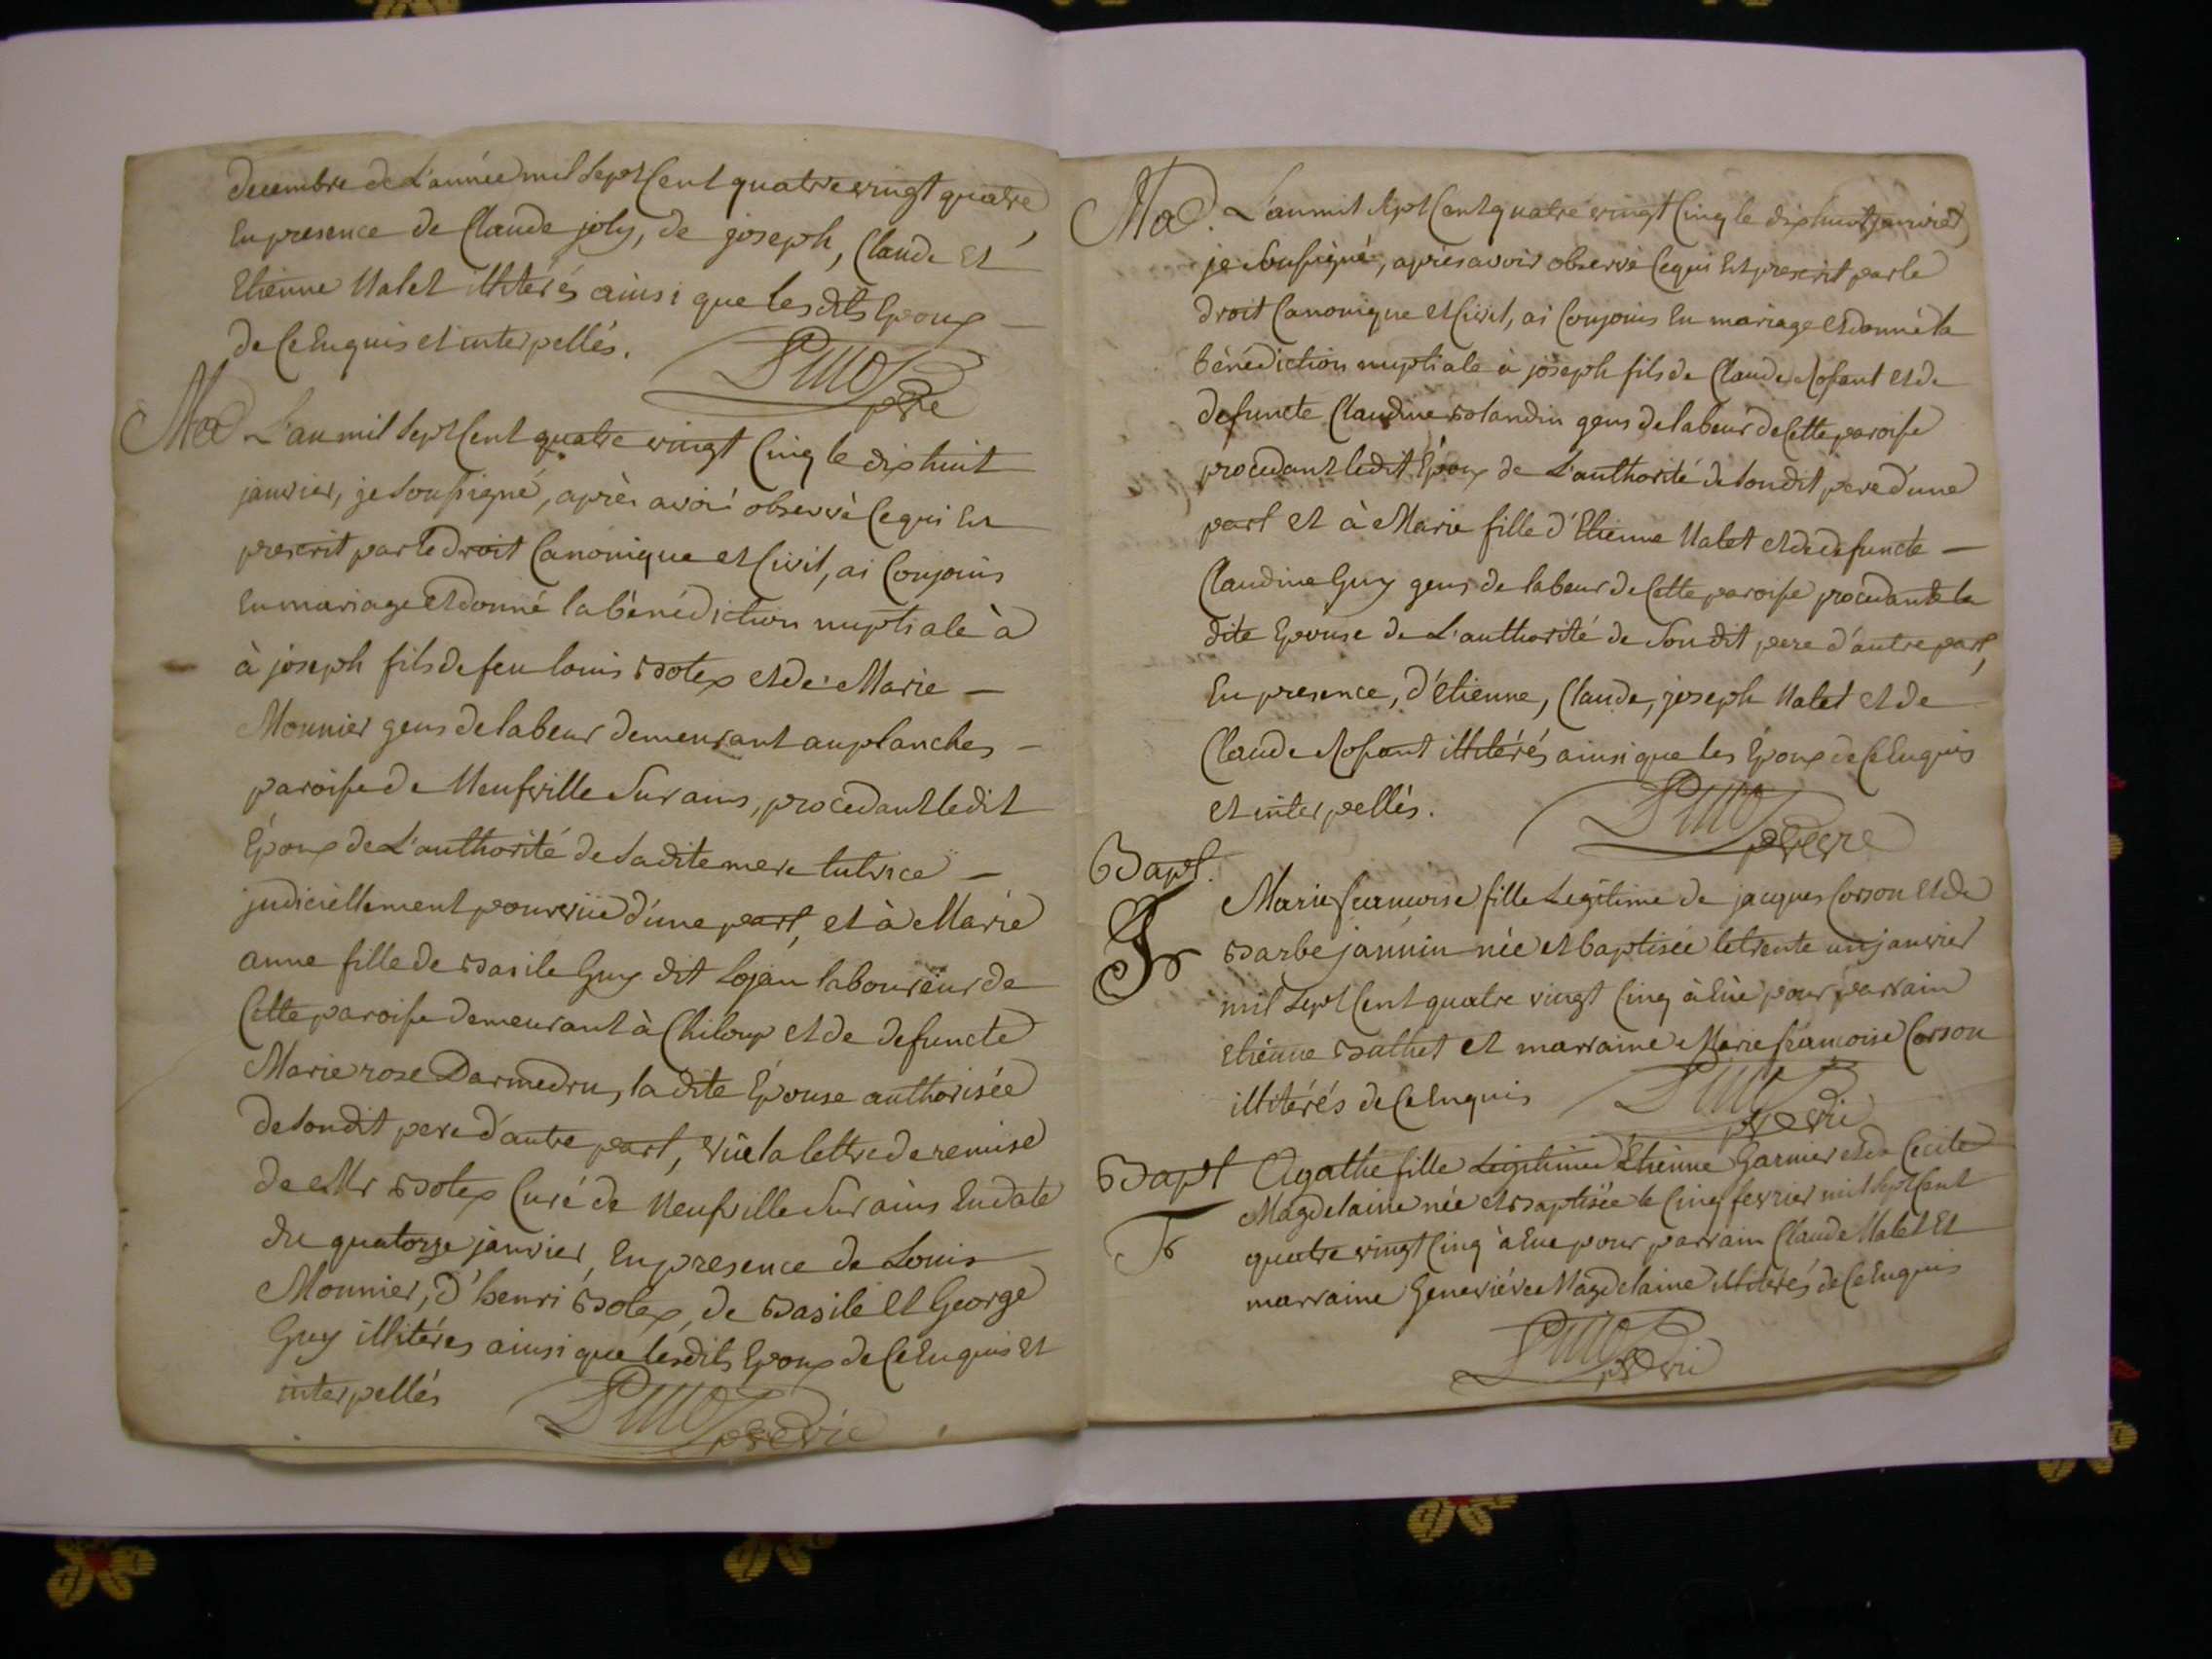 decembre de L'année mil Sept Cent quatre vingt quatre
En presence de Claude joly, de joseph, Claude Et
Etienne Nalet illitérés ainsi que lesdits Epoux —
de Ce Enquis et interpellés.
ptre
Ma. L'an mil Sept Cent quatre vingt Cinq le dix huit
janvier, je Soussigné, après avoir observé Ce qui Est
prescrit par le Droit Canonique et Civil, ai Conjoins
En mariage Et donné la bénédiction nuptiale à
à joseph fils de feu louis Botex et de Marie —
Monnier gens de labeur demeurant au planches —
paroisse de Neufville Sur ains, procedant ledit
Époux de L'authorité de Sadite mere tutrice —
judiciellement pourvüe d'une part, et à Marie
anne fille de Basile Guy dit Lojan laboureur de
Cette paroisse demeurant à Chiloup et de defuncte
Marie rose Darmedru, la dite Épouse authorisée
de Sondit pere d'autre part, vüe la lettre de remise
de Mr Botex Curé de Neufville Sur ains En date
du quatorze janvier, En presence de Louis
Monnier, d'henri Botex, de Basile et George
Guy illitéres ainsi que lesdits Epoux de Ce Enquis Et
interpellés
Ma. L'an mil Sept Cent quatre vingt Cinq le dix huit janvier
je Soussigné, après avoir observé Ce qui Est prescrit par le
droit Canonique et Civil, ai Conjoins En mariage et donné la
bénédiction nuptiale à joseph fils de Claude Rosant et de
defuncte Claudine Bolandin gens de labeur de Cette paroisse
procedant ledit Époux de L'authorité de Sondit pere d'une
part et à Marie fille d'Etienne Nalet et de defuncte —
Claudine Guy gens de labeur de Cette paroisse procedante la
dite Epouse de L'authorité de Son dit pere d'autre part,
En presence, d'étienne, Claude, joseph Nalet et de
Claude Rosant illitérés ainsi que les Époux de Ce Enquis
et interpellés.
Bapt.
Marie francoise fille Legitime de jacques Corson et de
Barbe jannin née et baptisée le trente un janvier
mil Sept Cent quatre vingt Cinq à Eüe pour parrain
Etienne Buthet et marraine Marie francoise Corson
illitérés de Ce Enquis
Bapt Agathe fille Legitime d'Etienne Garnier et de Cecile
Magdelaine née et Baptisée le Cinq fevrier mil Sept Cent
quatre vingt Cinq à Eue pour parrain Claude Nalet Et
marraine Genevieve Magdelaine illitérés de Ce Enquis